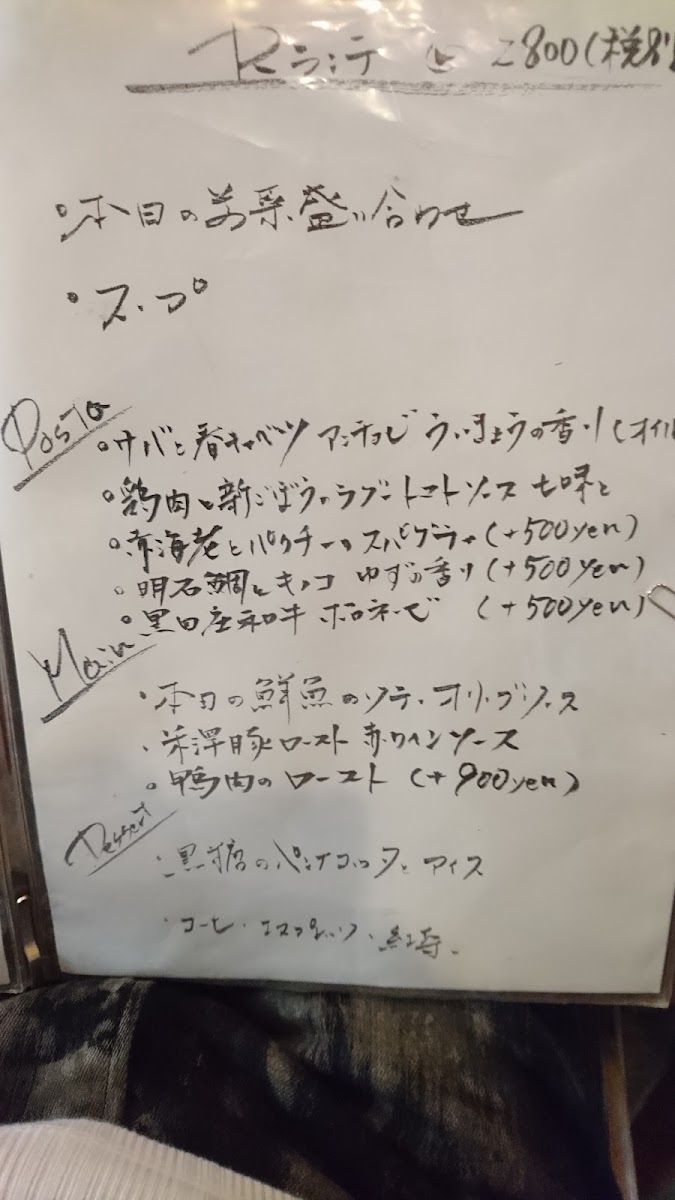 ランチ 2800(税別
・本日の前菜盛り合わせ
・スープ
Pasta
・サバと春キャベツ アンチョビ ういきょうの香り(オイル
・鶏肉と新ごぼうのラグートマトソース 七味と
・赤海老とパクチーのスパゲティ(+500yen)
・明石鯛とキノコ ゆずの香り(+500yen)
・黒田庄和牛 ボロネーゼ (+500yen)
Main
・本日の鮮魚のソテー オリーブソース
・米澤豚ロースト 赤ワインソース
・鴨肉のロースト (+900yen)
Dessert
・黒糖のパンナコッタと アイス
・コーヒー・エスプレッソ・紅茶